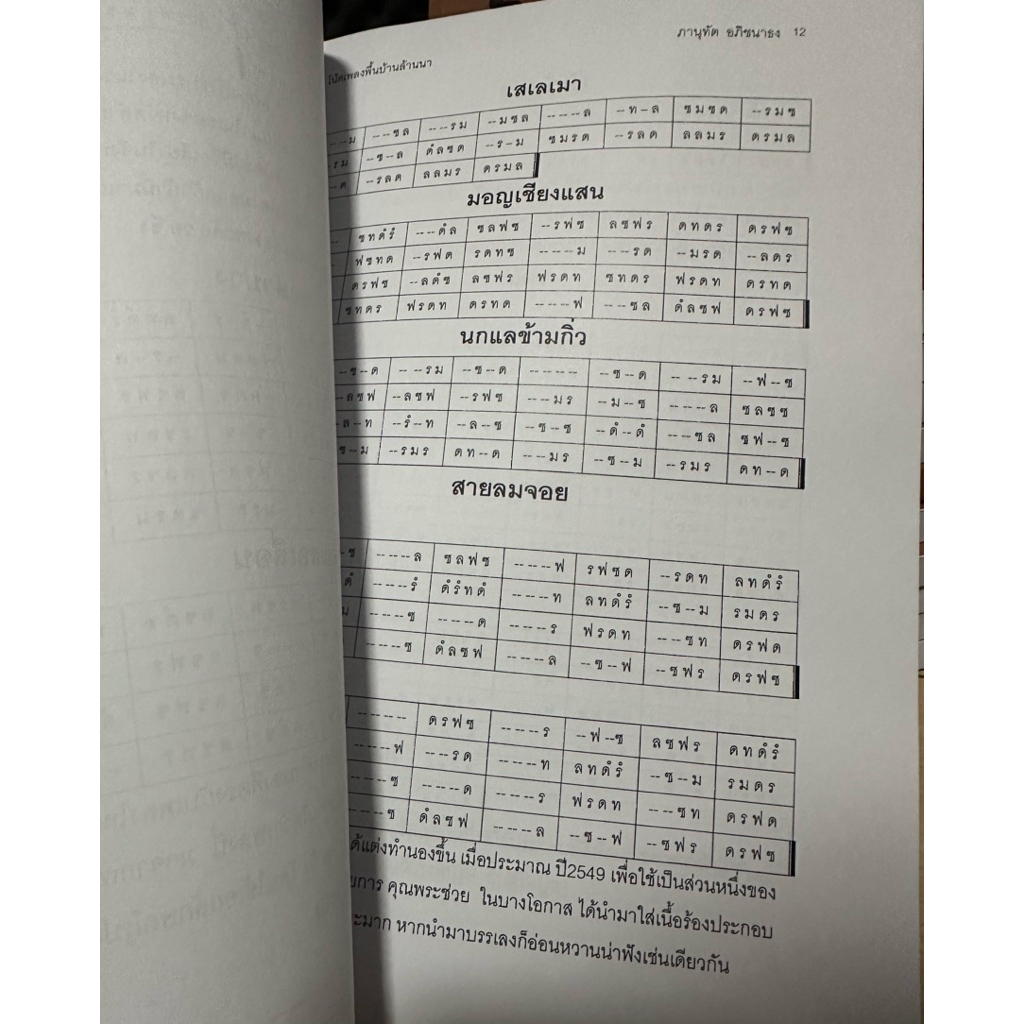 ภานุทัต อภิชนาธง 12
โน้ตเพลงพื้นบ้านล้านนา
เสเลเมา
---ม --ซล ---รม --มซล ----ล --ท-ล ซมซด --รมซ
รม --ซ-ล ดํลซด --ร-ม ซมรด --รลด ลลมร ดรมล
-ด --รลด ลลมร ดรมล
มอญเชียงแสน
ซทดํรํ ---ดํล ซลฟซ --รฟซ ลซฟร ดทดร ดรฟซ
ฟซทด --รฟด รดทซ ----ม ---รด --มรด --ลดร
ดรฟซ --ลดํซ ลซฟร ฟรดท ซทดร ฟรดท ดรทด
ซทดร ฟรดท ดรทด ----ฟ ---ซล ดํลซฟ ดรฟซ
นกแลข้ามกิ่ว
--ซ--ด ---รม --ซ--ด ----- --ซ--ด ---รม --ฟ--ซ
-ลซฟ --ลซฟ --รฟซ ---มร --ม--ซ ----ล ซลซซ
-ล-ท --รํ-ท --ล--ซ --ซ--ซ --ดํ--ดํ ---ซล ซฟ--ซ
ซ--ม --รมร ดท--ด ---มร --ซ--ม --รมร ดท--ด
สายลมจอย
--ซ ----ล ซลฟซ ----ฟ รฟซด --รดท ลทดํรํ
ดํ ----รํ ดํรํทดํ ----ท ลทดํรํ --ซ--ม รมดร
ม ----ซ ----ด ----ร ฟรดท ---ซท ดรฟด
----ซ ดํลซฟ ----ล --ซ--ฟ --ซฟร ดรฟซ
----- ดรฟซ ----ร --ฟ--ซ ลซฟร ดทดํรํ
----ฟ ---รด ----ท ลทดํรํ --ซ--ม รมดร
----ซ ----ด ----ร ฟรดท ---ซท ดรฟด
----ซ ดํลซฟ ----ล --ซ--ฟ --ซฟร ดรฟซ
ด้แต่งทำนองขึ้น เมื่อประมาณ ปี2549 เพื่อใช้เป็นส่วนหนึ่งของ
ยการ คุณพระช่วย ในบางโอกาส ได้นำมาใส่เนื้อร้องประกอบ
ะมาก หากนำมาบรรเลงก็อ่อนหวานน่าฟังเช่นเดียวกัน